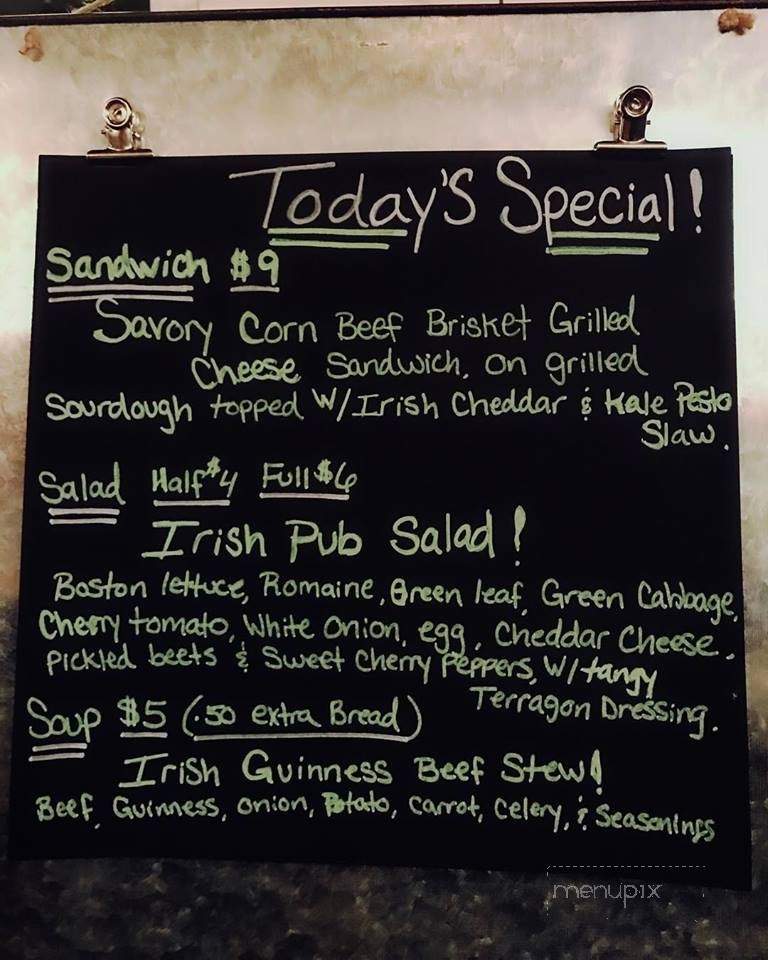 Today's Special!
Sandwich $9
Savory Corn Beef Brisket Grilled
Cheese Sandwich, on grilled
Sourdough topped W/Irish Cheddar & Kale Pesto
Slaw.
Salad Half $4 Full $6
Irish Pub Salad!
Boston lettuce, Romaine, Green leaf, Green Cabbage,
Cherry tomato, White onion, egg, Cheddar Cheese,
Pickled beets & Sweet Cherry Peppers, W/tangy
Terragon Dressing.
Soup $5 (.50 extra Bread)
Irish Guinness Beef Stew!
Beef, Guinness, onion, Potato, Carrot, Celery, & Seasonings
menupix